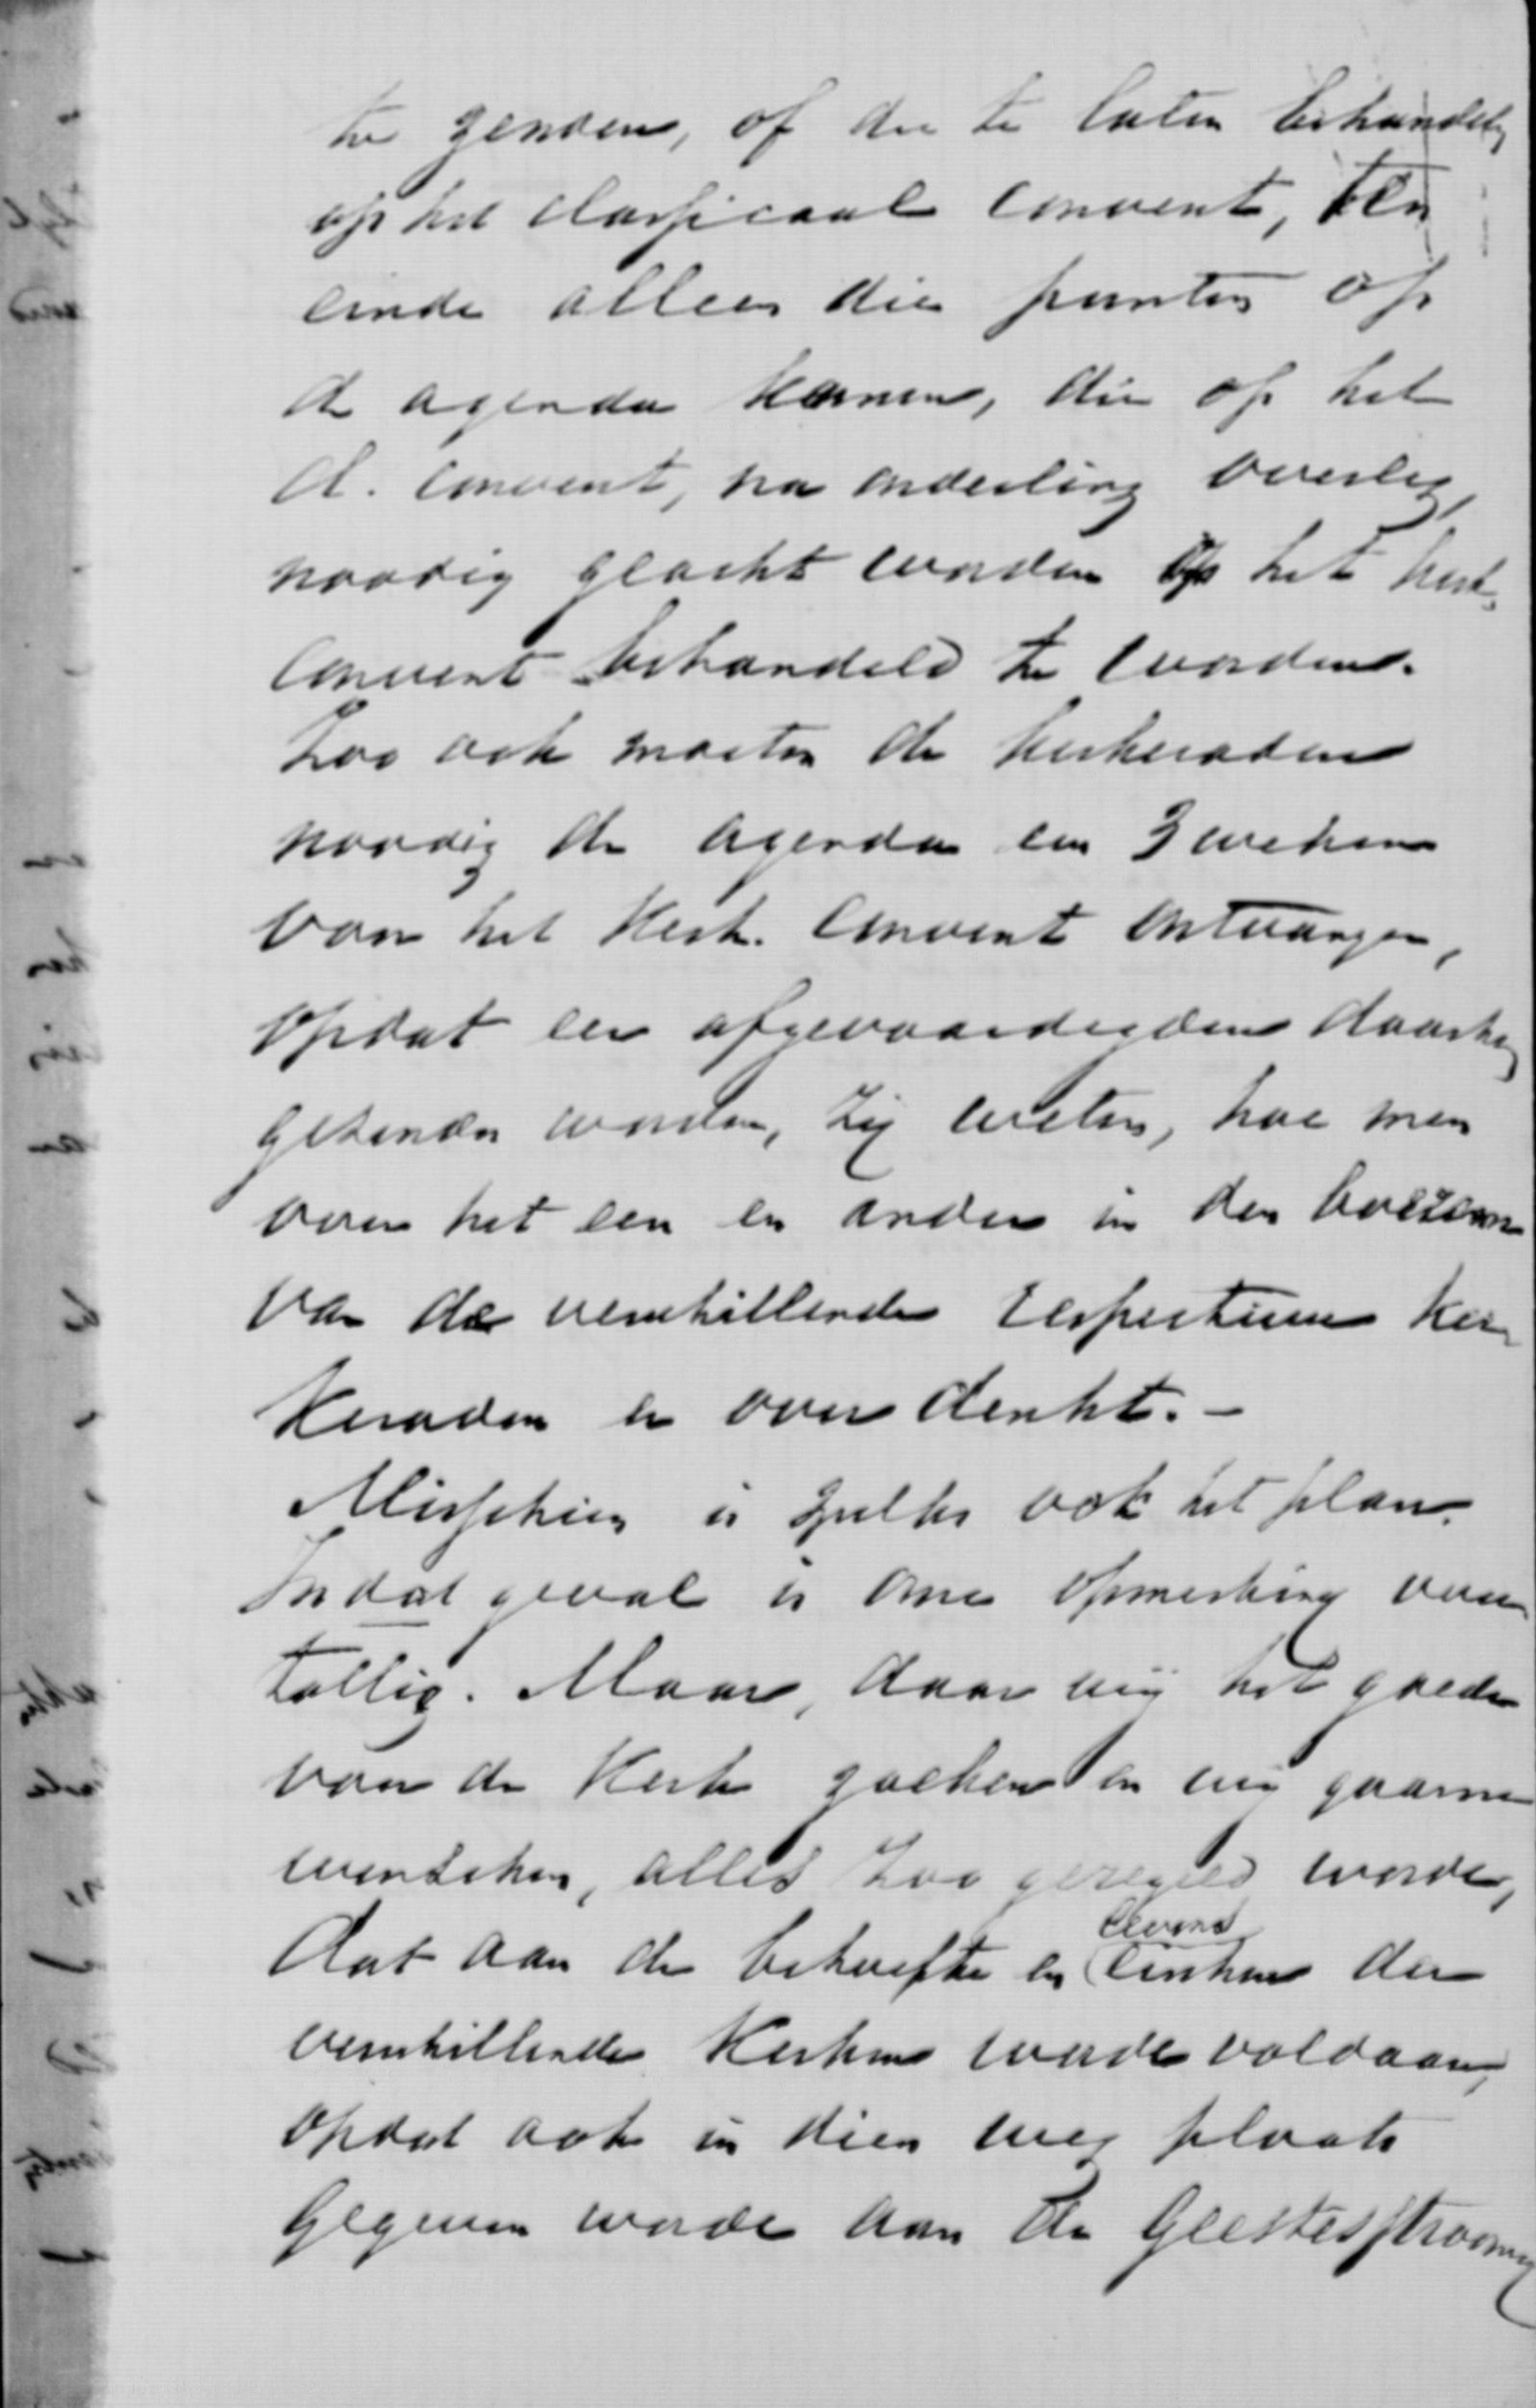 te zenden, of die te laten behandelen
op het classicaal convent, ten
einde alleen die punten op
de agenda komen, die op het
cl. convent, na onderling overleg,
noodig geacht worden op het kerk.
convent behandeld te worden.
Zoo ook moeten de kerkeraden
noodig de agenda een 3 weken
voor het Kerk. Convent ontvangen,
opdat eer afgevaardigden daarheen
gezonden worden, zij weten, hoe men
over het een en ander in den boezem
van de verschillende respectieve ker
keraden er over denkt. -
Misschien is zulks ook het plan.
In dat geval is onze opmerking over
tollig. Maar, daar wij het goede
voor de Kerk zoeken en wij gaarne
wenschen, alles zoo geregeld worde,
dat aan de behoefte en levens
der
verschillende Kerken worde voldaan,
opdat ook in dien weg plaats
gegeven worde aan de Geestesstrooming